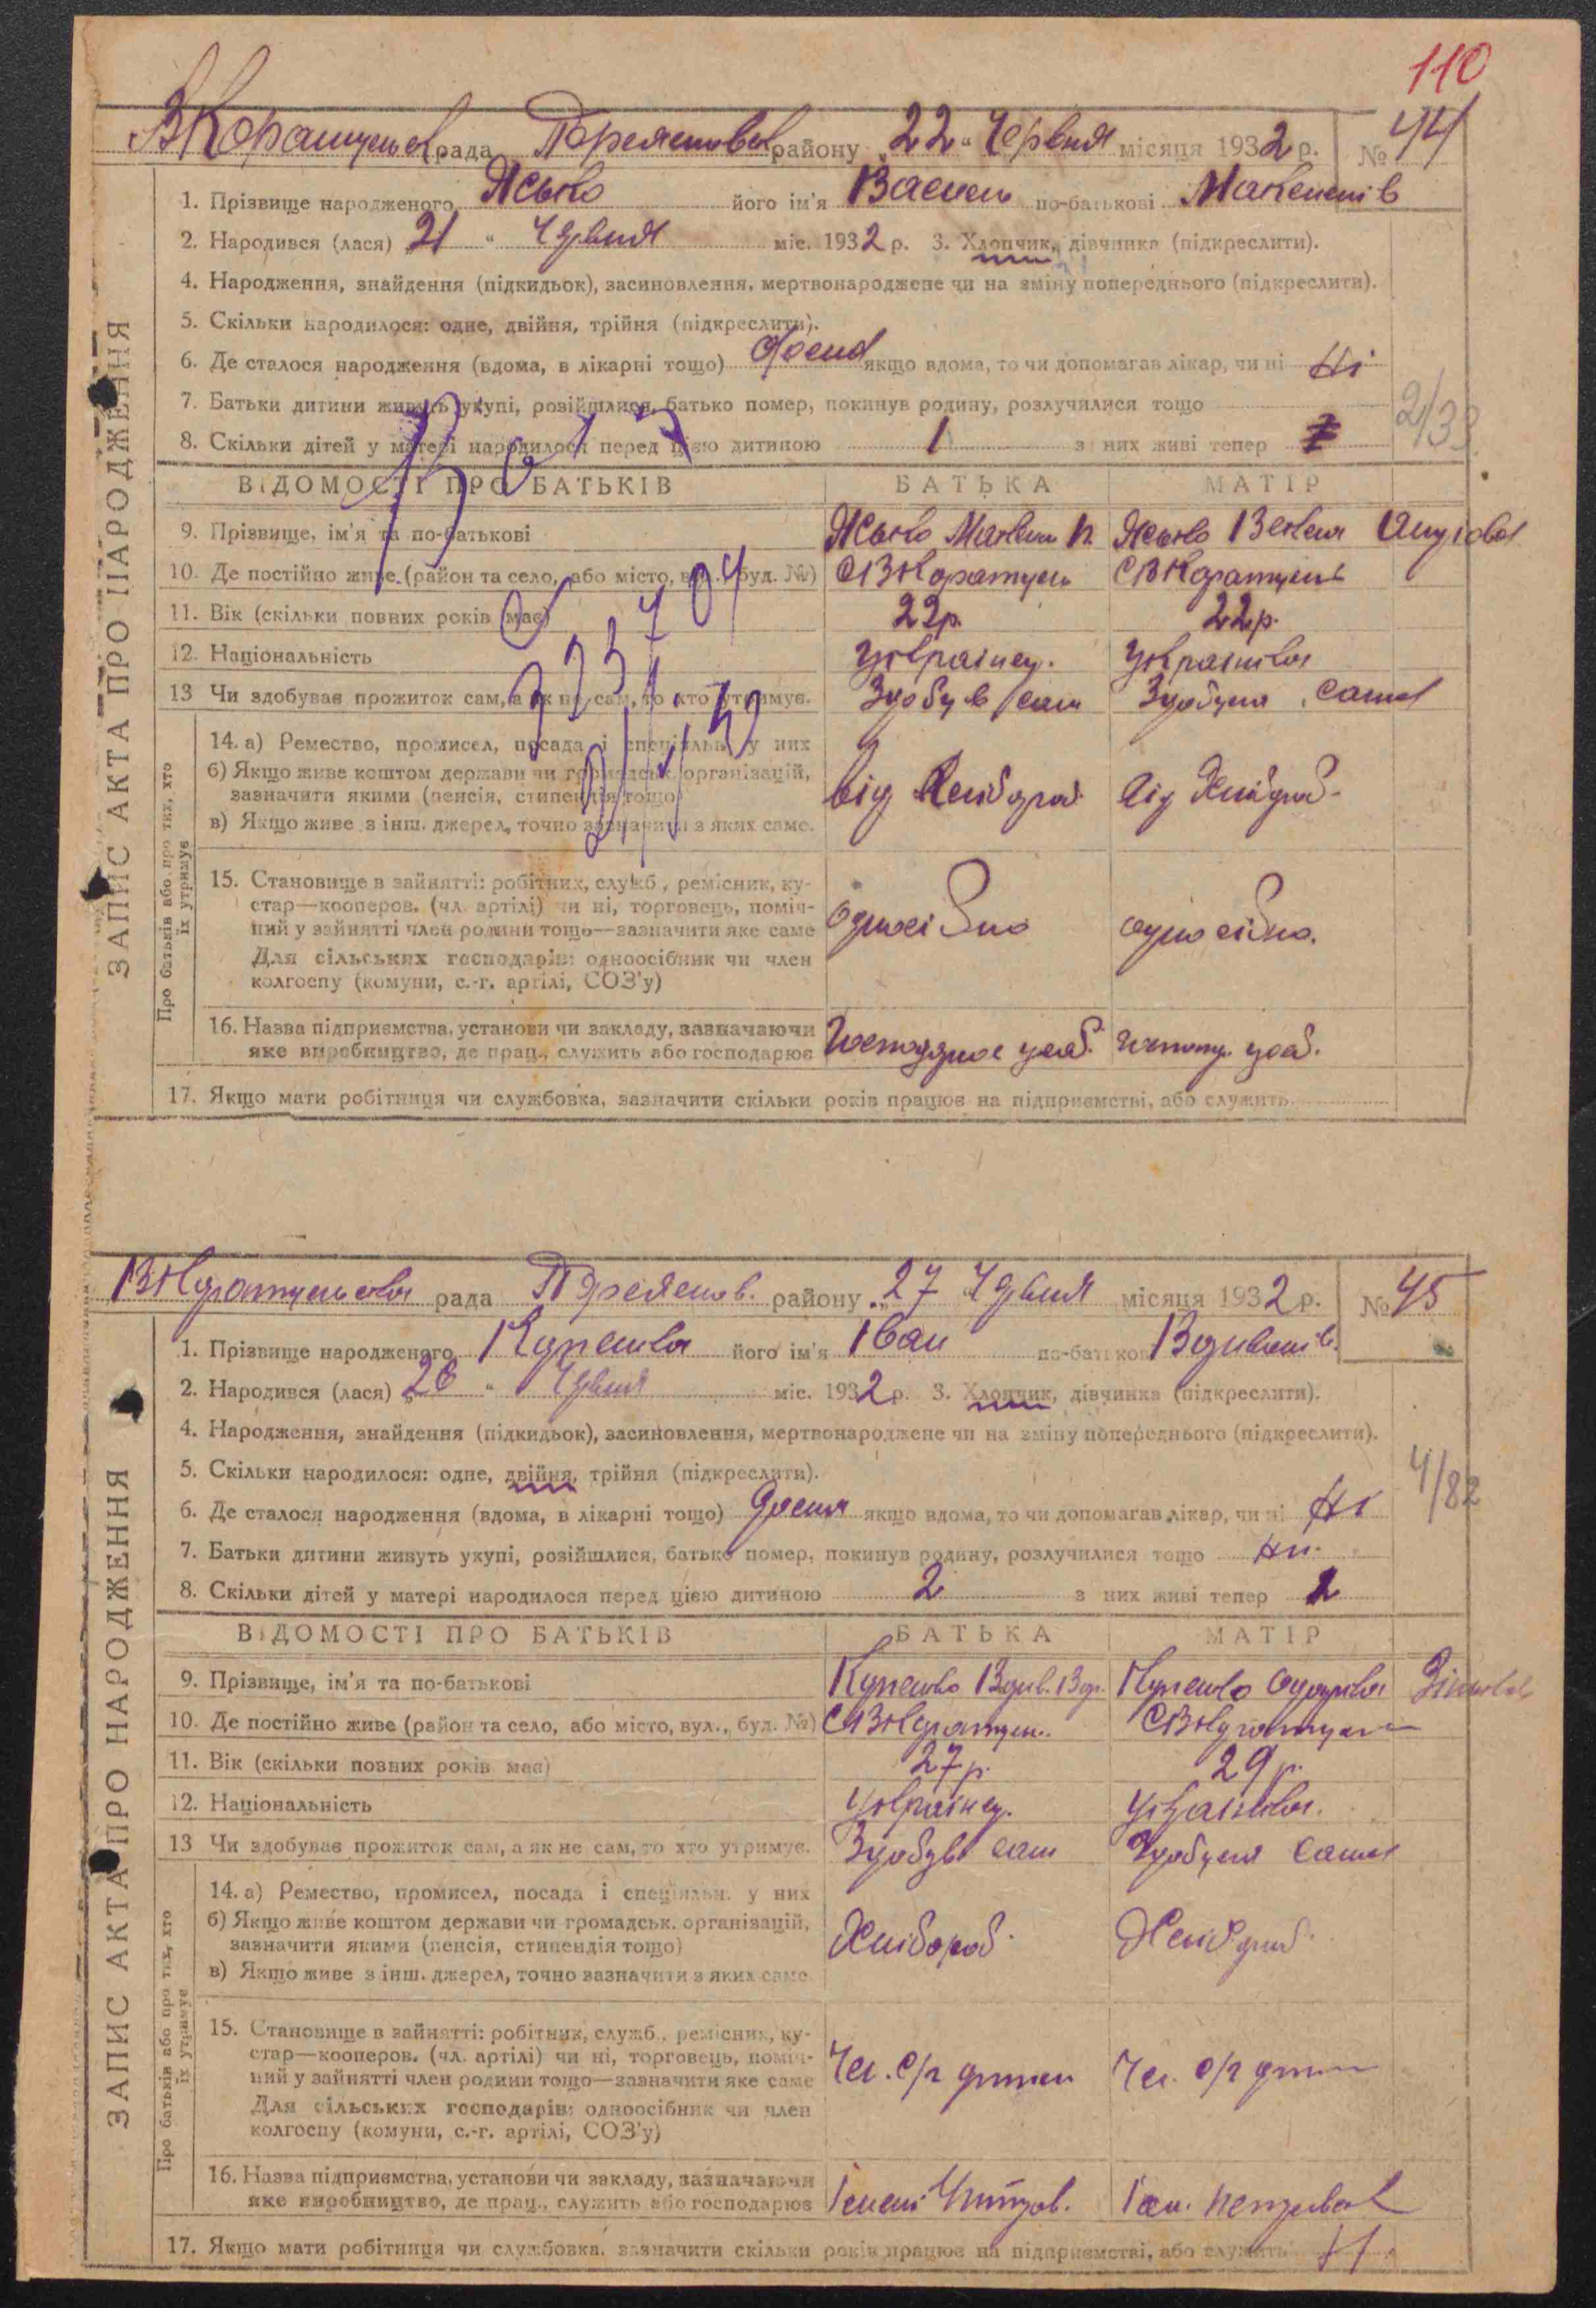 110
рада Переяслов району „22“ Червня місяця 1932 р. № 44
1. Прізвище народженого Ясько його ім'я Василь по-батькові
2. Народився (лася) 21 “ Червня міс. 1932 р. 3. Хлопчик, дівчинка (підкреслити).
4. Народження, знайдення (підкидьок), засиновлення, мертвонароджене чи на зміну попереднього (підкреслити).
5. Скільки народилося: одне, двійня, трійня (підкреслити).
6. Де сталося народження (вдома, в лікарні тощо) дома якщо вдома, то чи допомагав лікар, чи ні Ні
7. Батьки дитини живуть укупі, розійшлися, батько помер, покинув родину, розлучилися тощо
8. Скільки дітей у матері народилося перед цією дитиною 1 з них живі тепер
ВІДОМОСТІ ПРО БАТЬКІВ БАТЬКА МАТІР
9. Прізвище, ім'я та по-батькові Ясько Ясько
10. Де постійно живе (район та село, або місто, вул., буд. №)
11. Вік (скільки повних років має) 22р. 22р.
12. Національність Українец. Українка
13 Чи здобуває прожиток сам, а як не сам, то хто утримує. Здобув сам Здобула сама
14. а) Ремество, промисел, посада і спеціяльн. у них
б) Якщо живе коштом держави чи громадськ. організацій,
зазначити якими (пенсія, стипендія тощо)
в) Якщо живе з інш. джерел, точно зазначити з яких саме.
від Хлібороб від Хлібороб.
15. Становище в зайнятті: робітник, служб., ремісник, ку-
стар—кооперов. (чл. артілі) чи ні, торговець, поміч-
ний у зайнятті член родини тощо—зазначити яке саме
Для сільських господарів: одноосібник чи член
колгоспу (комуни, с.-г. артілі, СОЗ'у)
одноосібно одноосібно.
16. Назва підприємства, установи чи закладу, зазначаючи
яке виробництво, де прац., служить або господарює
17. Якщо мати робітниця чи службовка, зазначити скільки років працює на підприємстві, або служить
ЗАПИС АКТА ПРО НАРОДЖЕННЯ
Про батьків або про тих, хто
їх утримує
рада Переяслов. району „27 Червня місяця 1932 р. № 45
1. Прізвище народженого його ім'я Іван по-батькові
2. Народився (лася) 26 “ Червня міс. 1932 р. 3. Хлопчик, дівчинка (підкреслити).
4. Народження, знайдення (підкидьок), засиновлення, мертвонароджене чи на зміну попереднього (підкреслити).
5. Скільки народилося: одне, двійня, трійня (підкреслити).
4/82
6. Де сталося народження (вдома, в лікарні тощо) дома якщо вдома, то чи допомагав лікар, чи ні Ні
7. Батьки дитини живуть укупі, розійшлися, батько помер, покинув родину, розлучилися тощо
8. Скільки дітей у матері народилося перед цією дитиною 2 з них живі тепер
ВІДОМОСТІ ПРО БАТЬКІВ БАТЬКА МАТІР
9. Прізвище, ім'я та по-батькові
10. Де постійно живе (район та село, або місто, вул., буд. №)
11. Вік (скільки повних років має) 27р. 29р.
12. Національність Українец. Українка.
13 Чи здобуває прожиток сам, а як не сам, то хто утримує. Здобув сам Здобула сама
14. а) Ремество, промисел, посада і спеціяльн. у них
б) Якщо живе коштом держави чи громадськ. організацій,
зазначити якими (пенсія, стипендія тощо)
в) Якщо живе з інш. джерел, точно зазначити з яких саме
Хлібороб. Хлібороб.
15. Становище в зайнятті: робітник, служб., ремісник, ку-
стар—кооперов. (чл. артілі) чи ні, торговець, поміч-
ний у зайнятті член родини тощо—зазначити яке саме
Для сільських господарів: одноосібник чи член
колгоспу (комуни, с.-г. артілі, СОЗ'у)
Чл. с/г Чл. с/г
16. Назва підприємства, установи чи закладу, зазначаючи
яке виробництво, де прац., служить або господарює
17. Якщо мати робітниця чи службовка, зазначити скільки років працює на підприємстві, або служить
ЗАПИС АКТА ПРО НАРОДЖЕННЯ
Про батьків або про тих, хто
їх утримує